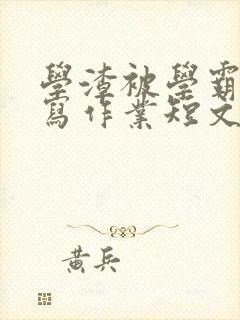 學渣被學霸
寫作業短文
黃兵